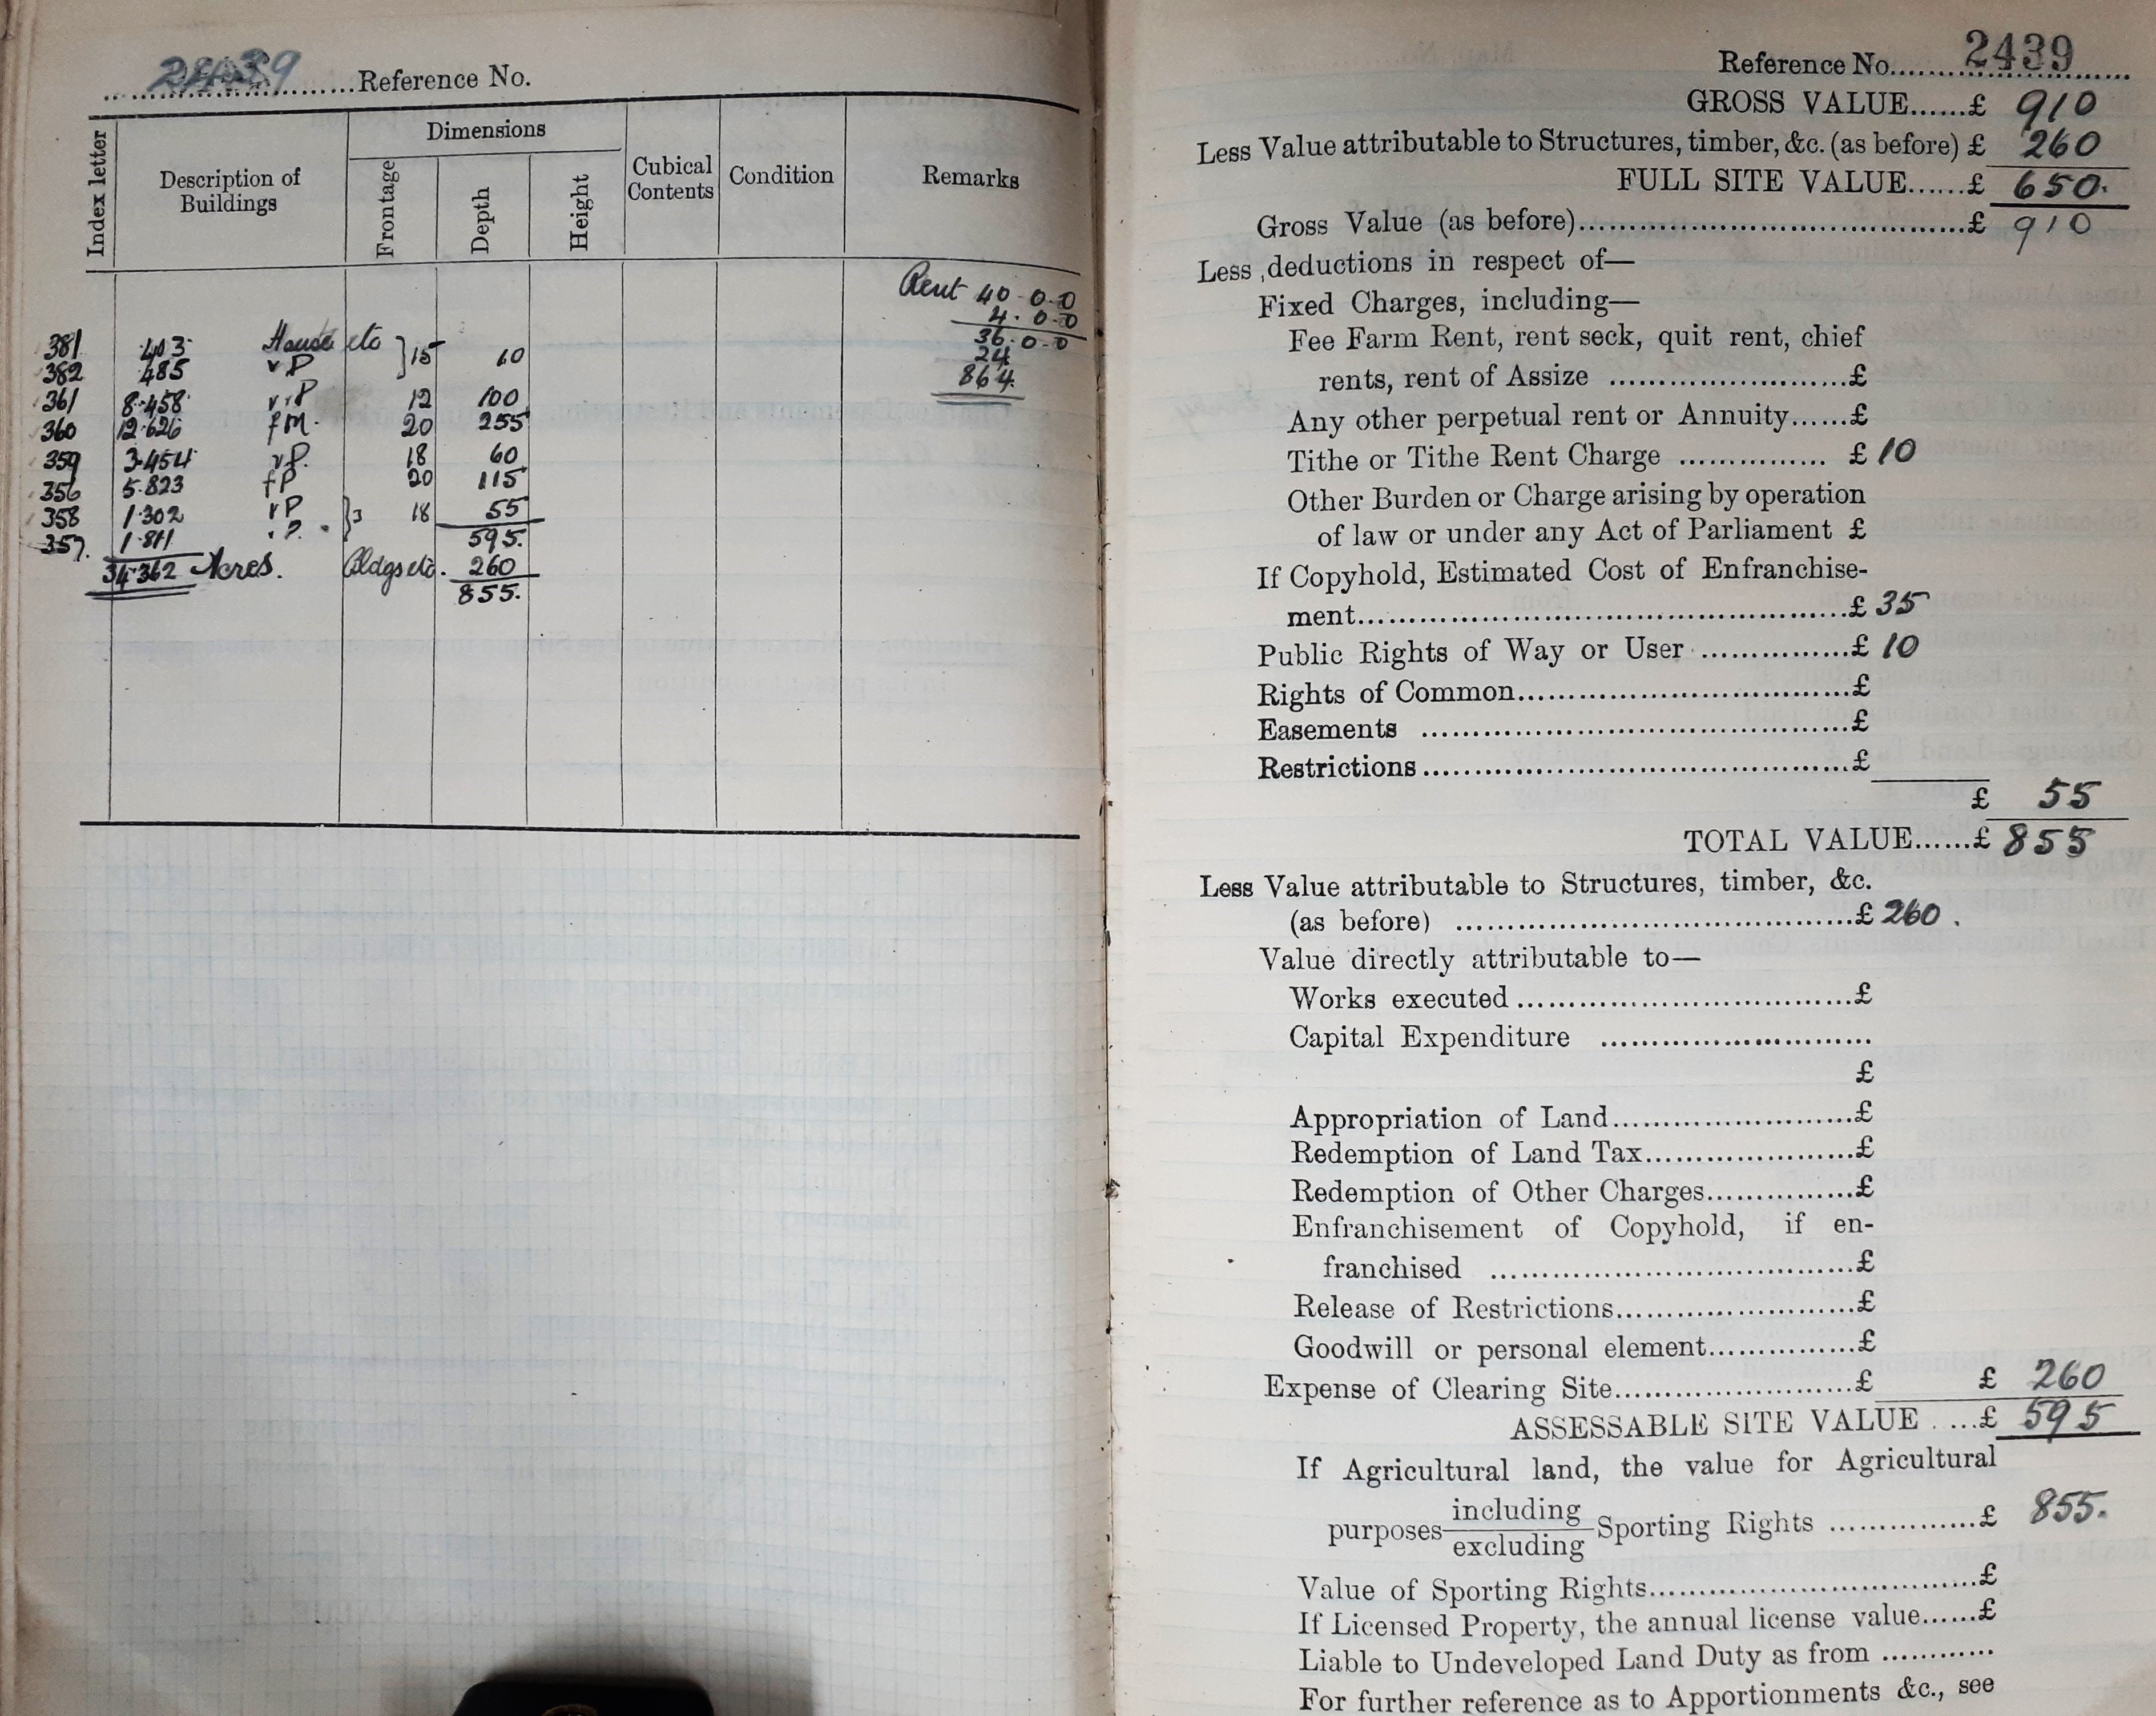 2439 Reference No.
Index letter
Description of Buildings
Dimensions
Frontage
Depth
Height
Cubical Contents
Condition
Remarks
Rent 40-0-0
4-0-0
36-0-0
24
864.
381 .403 House etc } 15 60
382 .485 v P
361 8.458 v.P 12 100
360 12.626 f M. 20 255
359 3.454 v P. 18 60
356 5.823 f P 20 115
358 1.302 r P } 3 18 55
357. 1.811 . P. 595.
34.362 Acres. Bldgs etc. 260
855.
Reference No. 2439
GROSS VALUE......£ 910
Less Value attributable to Structures, timber, &c. (as before) £ 260
FULL SITE VALUE......£ 650.
Gross Value (as before)......£ 910
Less deductions in respect of—
Fixed Charges, including—
Fee Farm Rent, rent seck, quit rent, chief
rents, rent of Assize ......£
Any other perpetual rent or Annuity......£
Tithe or Tithe Rent Charge ...... £ 10
Other Burden or Charge arising by operation
of law or under any Act of Parliament £
If Copyhold, Estimated Cost of Enfranchise-
ment......£ 35
Public Rights of Way or User ......£ 10
Rights of Common......£
Easements ......£
Restrictions......£
£ 55
TOTAL VALUE......£ 855
Less Value attributable to Structures, timber, &c.
(as before) ......£ 260.
Value directly attributable to—
Works executed......£
Capital Expenditure ......
£
Appropriation of Land......£
Redemption of Land Tax......£
Redemption of Other Charges......£
Enfranchisement of Copyhold, if en-
franchised ......£
Release of Restrictions......£
Goodwill or personal element......£
Expense of Clearing Site......£ £ 260
ASSESSABLE SITE VALUE ....£ 595
If Agricultural land, the value for Agricultural
purposes including / excluding Sporting Rights ......£ 855.
Value of Sporting Rights......£
If Licensed Property, the annual license value......£
Liable to Undeveloped Land Duty as from ......
For further reference as to Apportionments &c., see